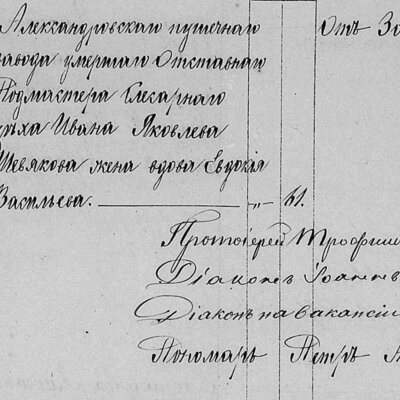 Александровскаго пушечнаго
завода умершаго Отставнаго
Подмастера Слесарнаго
цѣха Ивана Яковлева
Шевякова жена вдова Евдокія
Васильева. — „ — 61.
Отъ За
Протоіерей Трофим
Діаконъ Іоаннъ
Діаконъ на вакансіи
Пономарь Петръ